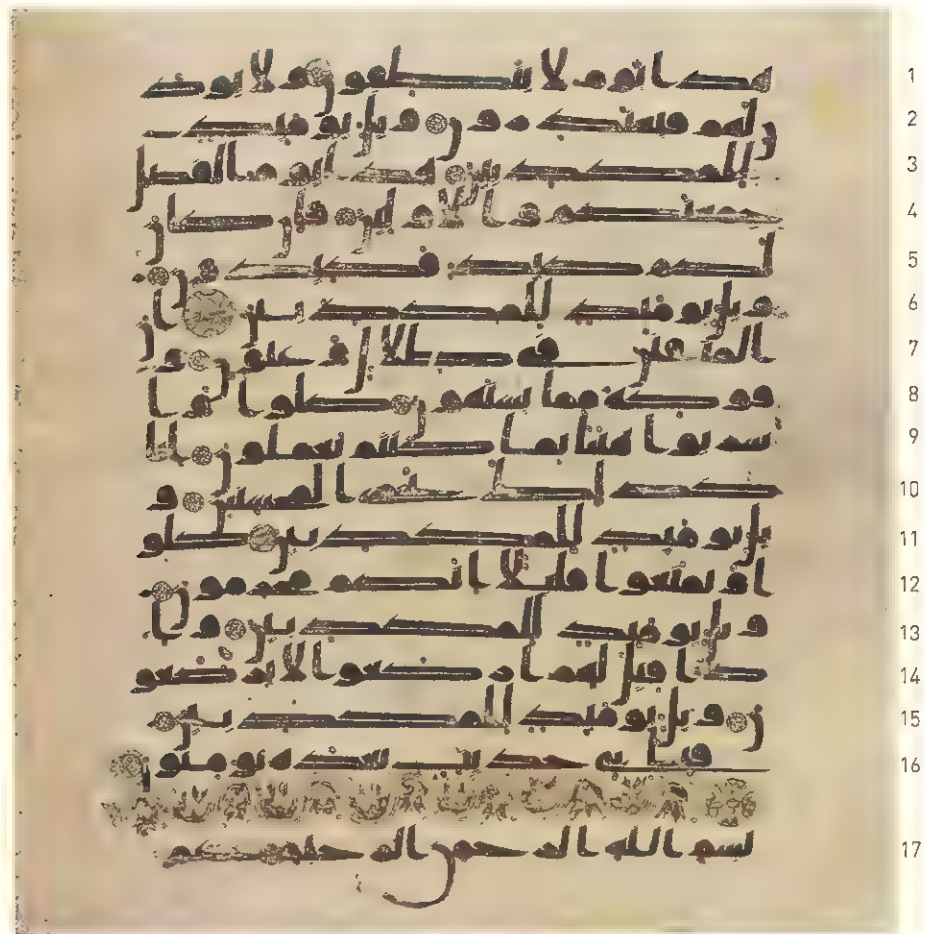 1 هذا يوم لا ينطقون ولا يوذ
2 ن لهم فيعتذرون ويل يومئذ
3 للمكذبين هذا يوم الفصل
4 جمعنكم والاولين فان كان
5 لكم كيد فكيدون
6 ويل يومئذ للمكذبين ان
7 المتقين في ظلل وعيون و
8 فوكه مما يشتهون كلوا وا
9 شربوا هنيا بما كنتم تعملون انا
10 كذلك نجزي المحسنين و
11 يل يومئذ للمكذبين كلو
12 ا وتمتعوا قليلا انكم مجرمون
13 ويل يومئذ للمكذبين وا
14 ذا قيل لهم اركعوا لا يركعو
15 ن ويل يومئذ للمكذبين
16 فباي حديث بعده يومنون
17 بسم الله الرحمن الرحيم